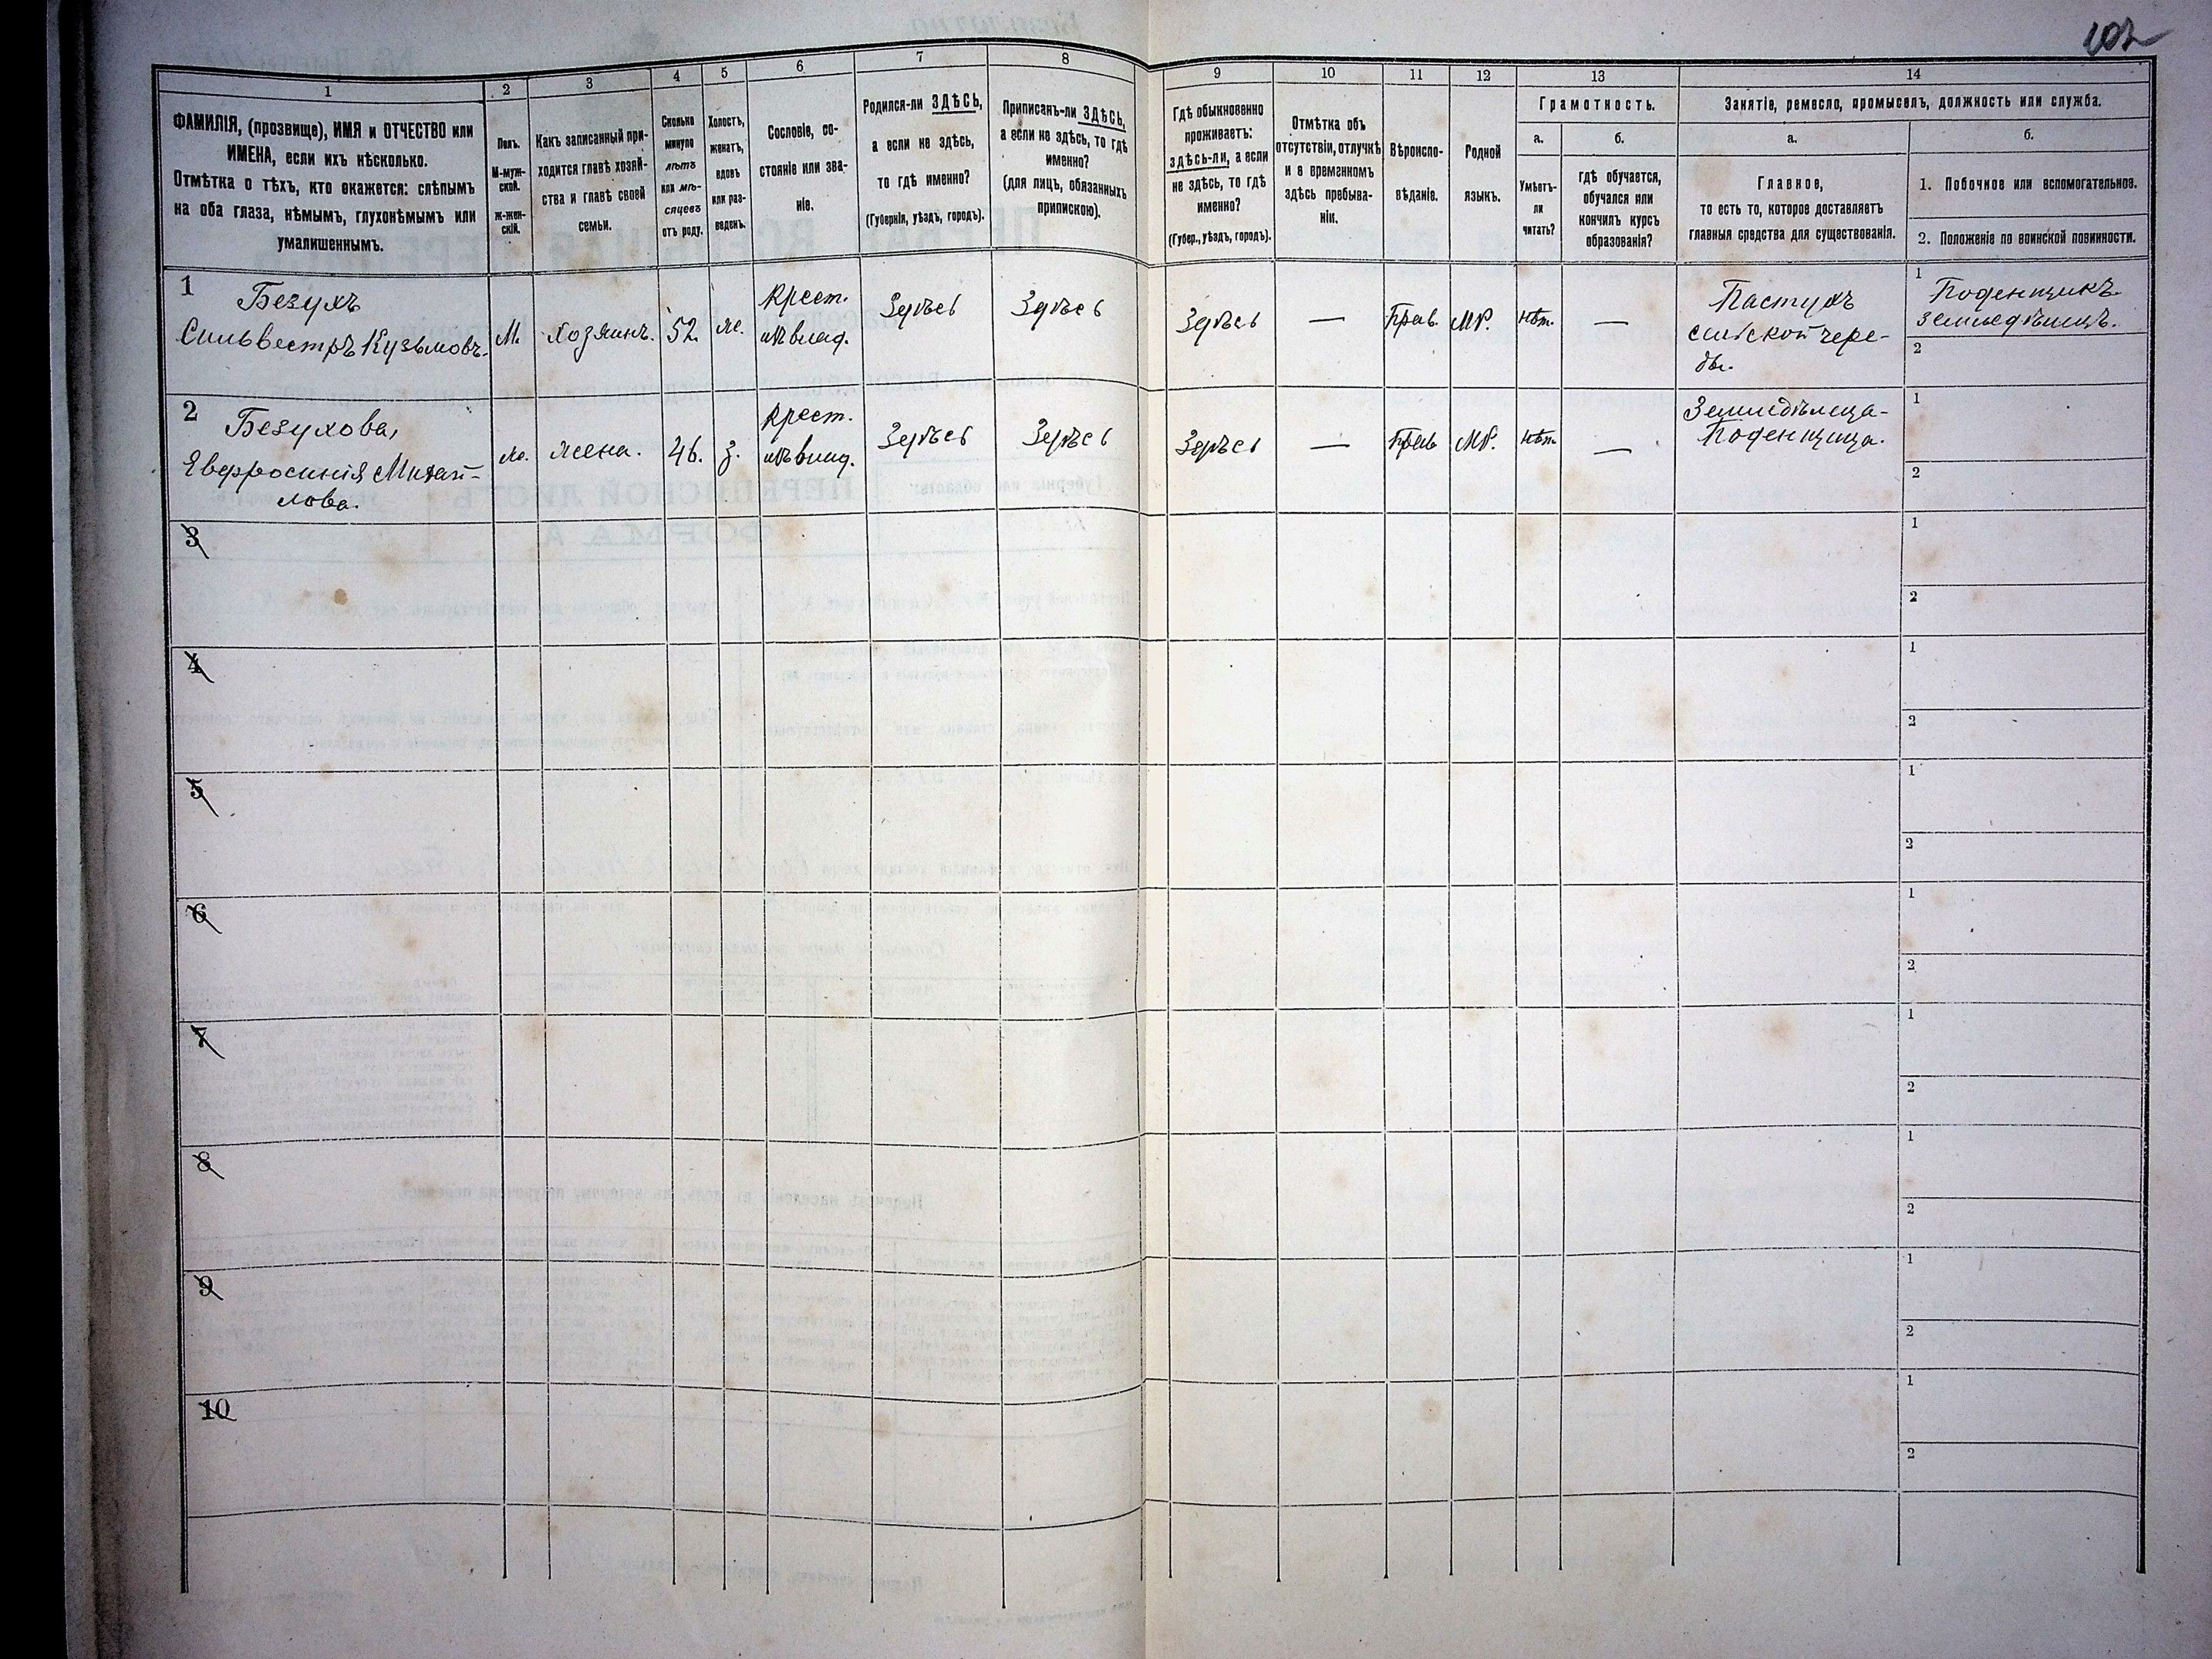 102
1
2
3
4
5
6
7
8
9
10
11
12
13
14
ФАМИЛІЯ, (прозвище), ИМЯ и ОТЧЕСТВО или
ИМЕНА, если ихъ нѣсколько.
Отмѣтка о тѣхъ, кто окажется: слѣпымъ
на оба глаза, нѣмымъ, глухонѣмымъ или
умалишеннымъ.
Полъ.
М-муж-
ской.
ж-жен-
скій.
Какъ записанный при-
ходится главѣ хозяй-
ства и главѣ своей
семьи.
Сколько
минуло
лѣтъ
или мѣ-
сяцевъ
отъ роду.
Холостъ,
женатъ,
вдовъ
или раз-
веденъ.
Сословіе, со-
стояніе или зва-
ніе.
Родился-ли ЗДѢСЬ,
а если не здѣсь,
то гдѣ именно?
(Губернія, уѣздъ, городъ).
Приписанъ-ли ЗДѢСЬ,
а если не здѣсь, то гдѣ
именно?
(для лицъ, обязанныхъ
припискою).
Гдѣ обыкновенно
проживаетъ:
здѣсь-ли, а если
не здѣсь, то гдѣ
именно?
(Губер., уѣздъ, городъ).
Отмѣтка объ
отсутствіи, отлучкѣ
и о временномъ
здѣсь пребыва-
ніи.
Вѣроиспо-
вѣданіе.
Родной
языкъ.
Грамотность.
а.
Умѣетъ-
ли
читать?
б.
гдѣ обучается,
обучался или
кончилъ курсъ
образованія?
Занятіе, ремесло, промыселъ, должность или служба.
а.
Главное,
то есть то, которое доставляетъ
главныя средства для существованія.
б.
1. Побочное или вспомогательное.
2. Положеніе по воинской повинности.
1
Безухъ
Сильвестръ Кузьмовъ.
М.
Хозяинъ.
52.
ж.
Крест.
Здѣсь
Здѣсь
Здѣсь
—
Прав.
МР.
нѣт.
—
Пастухъ
сельской чере-
ды.
1
Поденщикъ
земледѣлецъ.
2
2
Безухова,
Евфросинія Михай-
лова.
ж.
жена.
46.
з.
Крест.
Здѣсь
Здѣсь
Здѣсь
—
Прав
МР.
нѣт
—
Земледѣлица-
Поденщица.
1
2
3
1
2
4
1
2
5
1
2
6
1
2
7
1
2
8
1
2
9
1
2
10
1
2